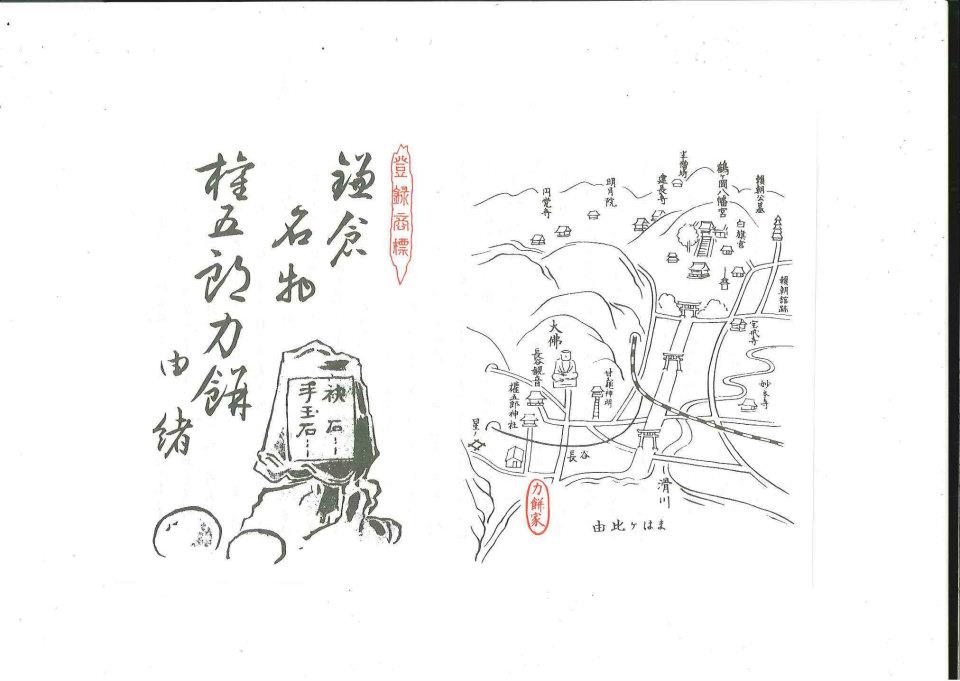 登録商標
鎌倉
名物
権五郎力餅
由緒
袂石
手玉石
頼朝公墓
鶴ヶ岡八幡宮
半僧坊
建長寺
明月院
円覚寺
白旗宮
頼朝舘跡
宝戒寺
妙本寺
大佛
長谷観音
甘縄神明
権五郎神社
星ノ井
長谷
滑川
力餅家
由比ヶはま